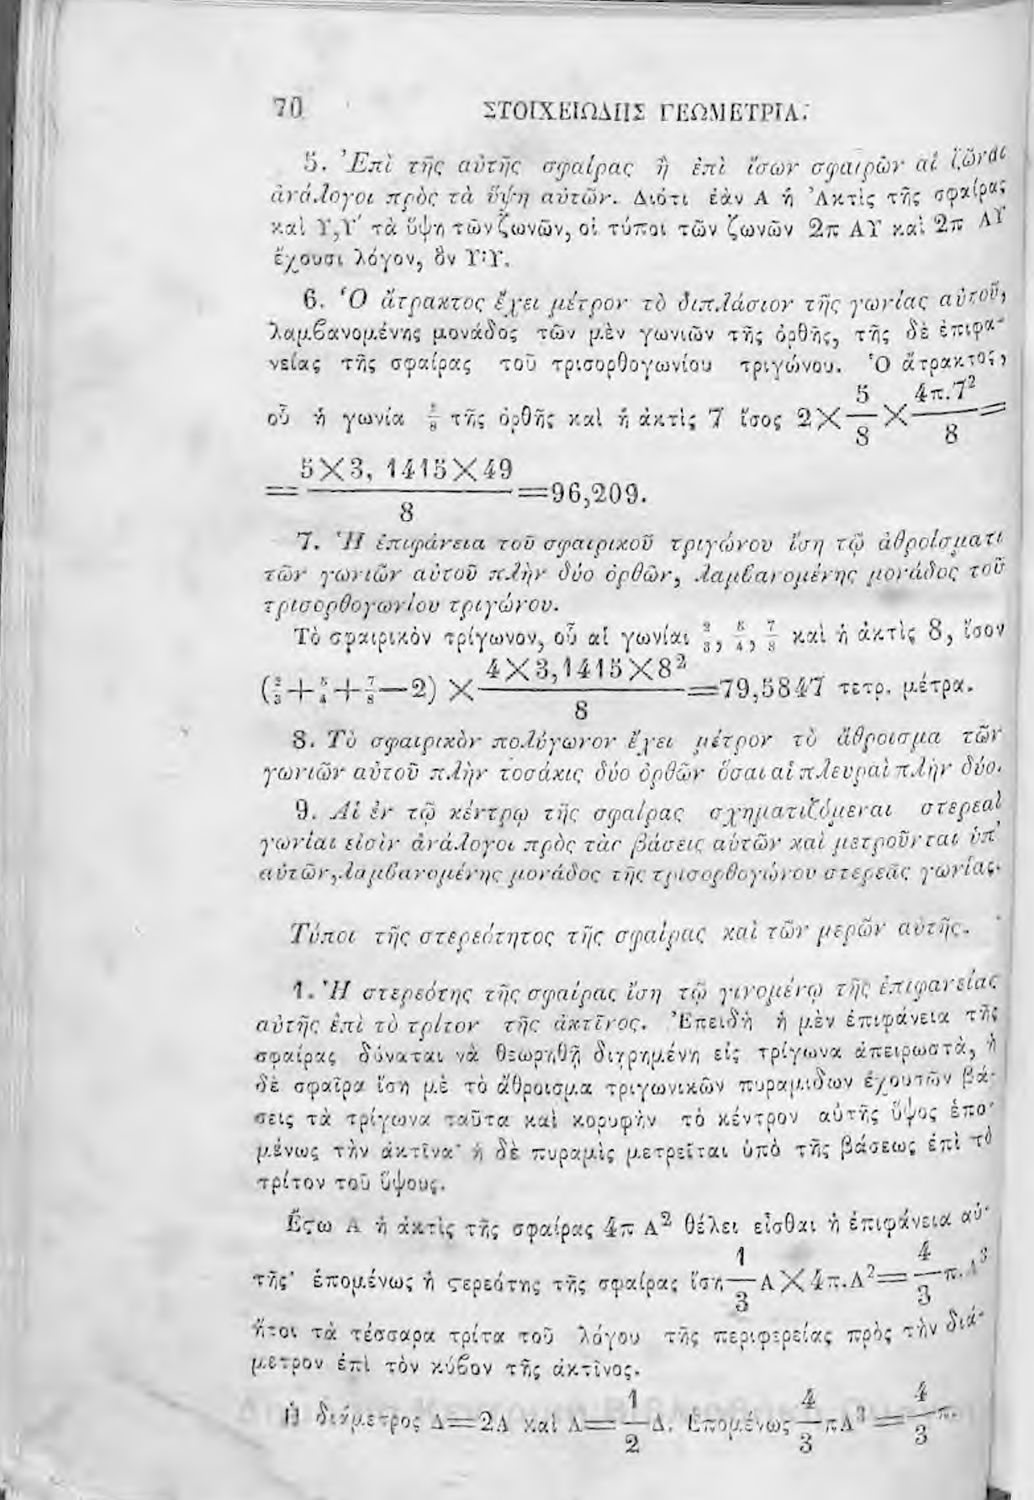 70 ΣΤΟΙΧΕΙΩΔΗΣ ΓΕΩΜΕΤΡΙΑ.
5. Ἐπὶ τῆς αὐτῆς σφαίρας ἢ ἐπὶ ἴσων σφαιρῶν αἱ ζῶναι
ἀνάλογοι πρὸς τὰ ὕψη αὐτῶν. Διότι ἐὰν Α ἡ Ἀκτὶς τῆς σφαίρας
καὶ Υ,Υ' τὰ ὕψη τῶν ζωνῶν, οἱ τύποι τῶν ζωνῶν 2π ΑΥ καὶ 2π ΑΥ
ἔχουσι λόγον, ὃν Υ:Υ.
6. Ὁ ἄτρακτος ἔχει μέτρον τὸ διπλάσιον τῆς γωνίας αὐτοῦ,
λαμβανομένης μονάδος τῶν μὲν γωνιῶν τῆς ὀρθῆς, τῆς δὲ ἐπιφα-
νείας τῆς σφαίρας τοῦ τρισορθογωνίου τριγώνου. Ὁ ἄτρακτος,
οὗ ἡ γωνία 5/8 τῆς ὀρθῆς καὶ ἡ ἀκτὶς 7 ἴσος 2×5/8×4π.7²/8=
=5×3,1415×49/8=96,209.
7. Ἡ ἐπιφάνεια τοῦ σφαιρικοῦ τριγώνου ἴση τῷ ἀθροίσματι
τῶν γωνιῶν αὐτοῦ πλὴν δύο ὀρθῶν, λαμβανομένης μονάδος τοῦ
τρισορθογωνίου τριγώνου.
Τὸ σφαιρικὸν τρίγωνον, οὗ αἱ γωνίαι 2/3, 5/4, 7/8 καὶ ἡ ἀκτὶς 8, ἴσον
(2/3+5/4+7/8—2)×4×3,1415×8²/8=79,5847 τετρ. μέτρα.
8. Τὸ σφαιρικὸν πολύγωνον ἔχει μέτρον τὸ ἄθροισμα τῶν
γωνιῶν αὐτοῦ πλὴν τοσάκις δύο ὀρθῶν ὅσαι αἱ πλευραὶ πλὴν δύο.
9. Αἱ ἐν τῷ κέντρῳ τῆς σφαίρας σχηματιζόμεναι στερεαὶ
γωνίαι εἰσὶν ἀνάλογοι πρὸς τὰς βάσεις αὐτῶν καὶ μετροῦνται ὑπ'
αὐτῶν, λαμβανομένης μονάδος τῆς τρισορθογώνου στερεᾶς γωνίας.
Τύποι τῆς στερεότητος τῆς σφαίρας καὶ τῶν μερῶν αὐτῆς.
1. Ἡ στερεότης τῆς σφαίρας ἴση τῷ γινομένῳ τῆς ἐπιφανείας
αὐτῆς ἐπὶ τὸ τρίτον τῆς ἀκτῖνος. Ἐπειδὴ ἡ μὲν ἐπιφάνεια τῆς
σφαίρας δύναται νὰ θεωρηθῇ διῃρημένη εἰς τρίγωνα ἀπειρωστὰ, ἡ
δὲ σφαῖρα ἴση μὲ τὸ ἄθροισμα τριγωνικῶν πυραμίδων ἐχουσῶν βά-
σεις τὰ τρίγωνα ταῦτα καὶ κορυφὴν τὸ κέντρον αὐτῆς ὕψος ἑπο-
μένως τὴν ἀκτῖνα· ἡ δὲ πυραμὶς μετρεῖται ὑπὸ τῆς βάσεως ἐπὶ τὸ
τρίτον τοῦ ὕψους.
Ἔςω Α ἡ ἀκτὶς τῆς σφαίρας 4π Α² θέλει εἶσθαι ἡ ἐπιφάνεια αὐ-
τῆς· ἑπομένως ἡ ςερεότης τῆς σφαίρας ἴση 1/3 Α×4π.Α²=4/3 π.Α³
ἤτοι τὰ τέσσαρα τρίτα τοῦ λόγου τῆς περιφερείας πρὸς τὴν διά-
μετρον ἐπὶ τὸν κύβον τῆς ἀκτῖνος.
Ἡ διάμετρος Δ=2Α καὶ Α=1/2 Δ. Ἑπομένως 4/3 πΑ³=4/3 π.